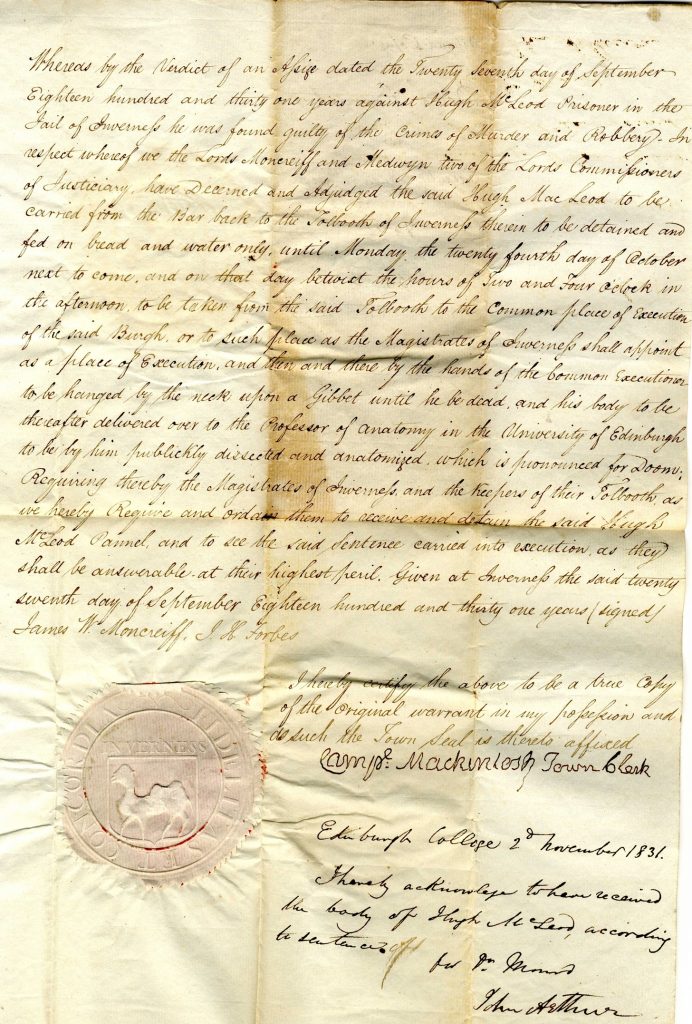 Whereas by the Verdict of an Assize dated the Twenty Seventh day of September
Eighteen hundred and thirty one years against Hugh McLeod Prisoner in the
Jail of Inverness he was found guilty of the Crimes of Murder and Robbery. In
respect whereof we the Lords Moncreiff and Medwyn two of the Lords Commissioners
of Justiciary, have Decerned and Adjudged the said Hugh Mac Leod to be
carried from the Bar back to the Tolbooth of Inverness therein to be detained and
fed on bread and water only, until Monday the twenty fourth day of October
next to come, and on that day betwixt the hours of Two and Four o'clock in
the afternoon, to be taken from the said Tolbooth to the Common place of Execution
of the said Burgh, or to such place as the Magistrates of Inverness shall appoint
as a place of Execution, and then and there by the hands of the Common Executioner
to be hanged by the neck upon a Gibbet until he be dead, and his body to be
thereafter delivered over to the Professor of anatomy in the University of Edinburgh
to be by him publickly dissected and anatomized, which is pronounced for Doom;
Requiring thereby the Magistrates of Inverness, and the Keepers of their Tolbooth as
we hereby Require and ordain them to receive and detain the said Hugh
McLeod Pannel, and to see the said Sentence carried into execution, as they
shall be answerable at their highest peril. Given at Inverness the said twenty
seventh day of September Eighteen hundred and thirty one years (signed)
James W. Moncreiff. J. H. Forbes
I hereby certify the above to be a true Copy
of the original warrant in my possession and
as such the Town Seal is thereto affixed
Campl. Mackintosh Town Clerk
CONCORDIA ET FIDELITAS
INVERNESS
Edinburgh College 2d November 1831.
I hereby acknowlege to have received
the body of Hugh McLeod, according
to sentence
for Dr. Monro
John Arthur